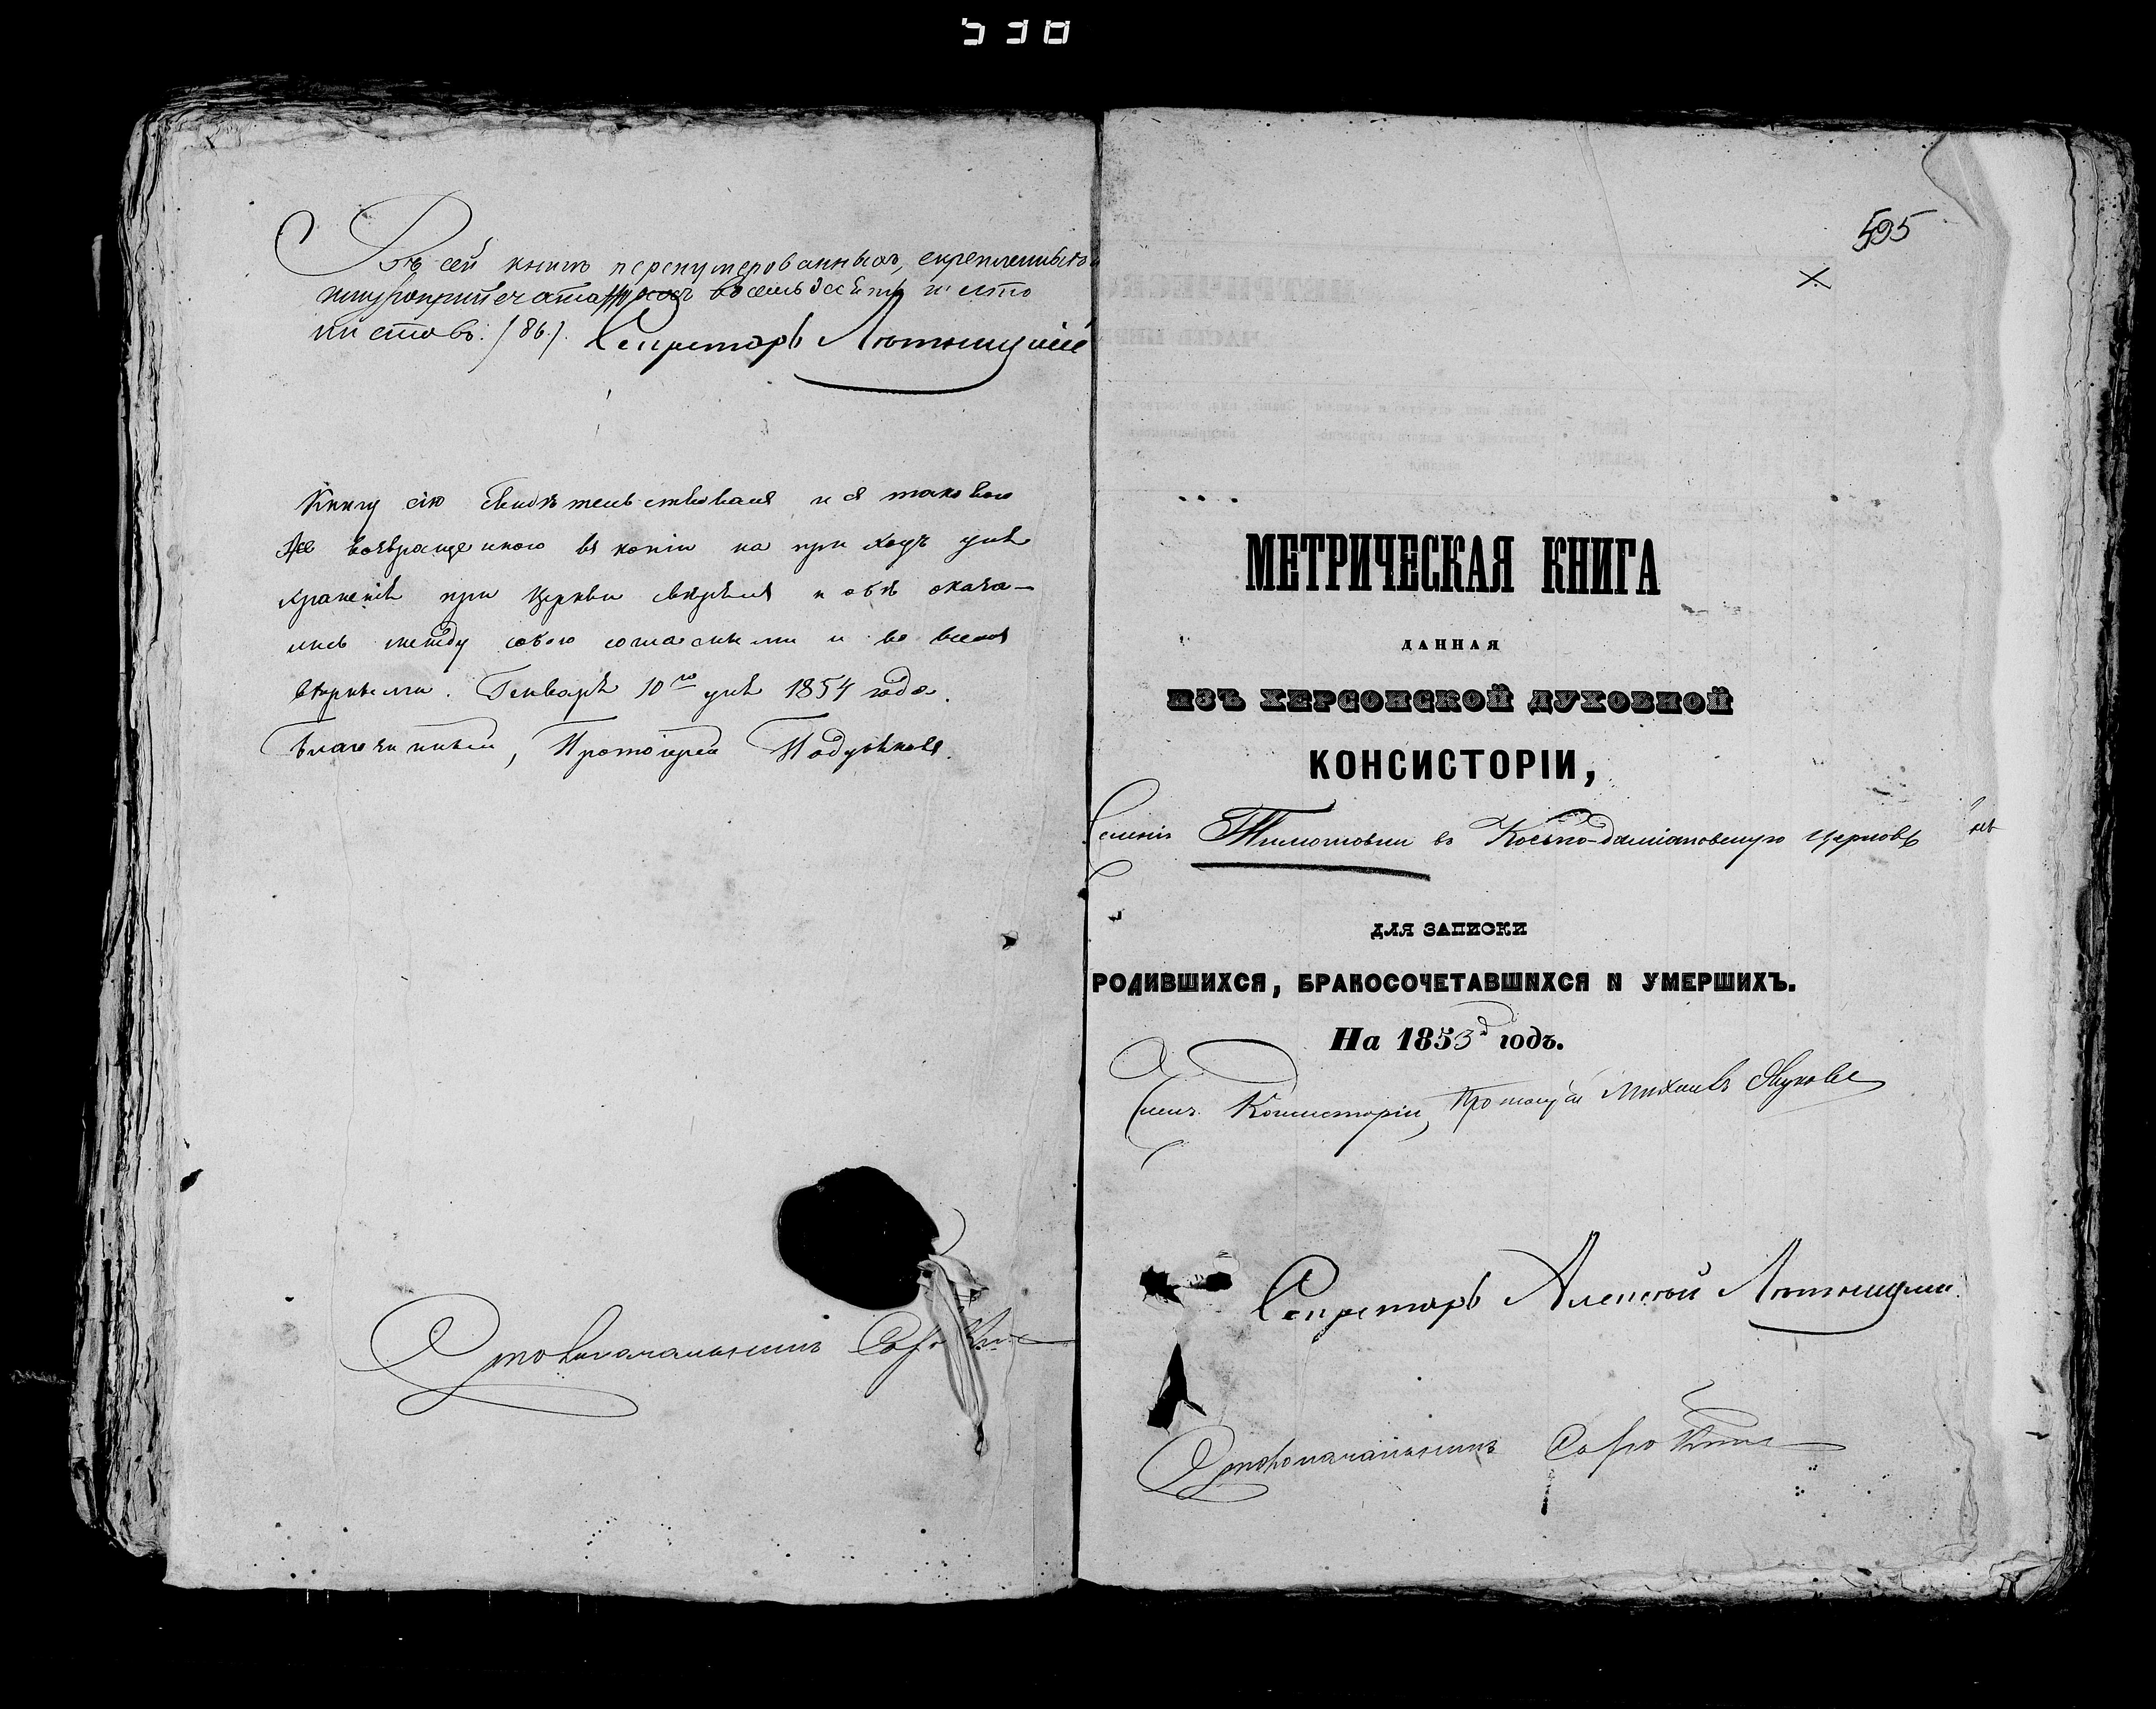 538
Въ сей книгѣ перенумерованныхъ, скрепленныхъ и
шнуроприпечата восемьдесятъ шесть
листовъ. /86/. Секретарь Лотоцкій
Книгу сію Свидѣтельствовалъ и съ таковою
же возвращенною въ копіи на приходъ для
храненія при Церкви свѣрялъ и обѣ оказа-
лись между собою согласными и во всемъ
вѣрными. Генваря 10го дня 1854 года.
Благочинный, Протоіерей
Столоначальникъ
595
МЕТРИЧЕСКАЯ КНИГА
ДАННАЯ
ИЗЪ ХЕРСОНСКОЙ ДУХОВНОЙ
КОНСИСТОРІИ,
Селенія въ Косьмо-Даміановскую Церковь
ДЛЯ ЗАПИСКИ
РОДИВШИХСЯ, БРАКОСОЧЕТАВШИХСЯ И УМЕРШИХЪ.
На 1853й годъ.
Членъ Консисторіи, Протоіерей Михаилъ
Секретарь Алексѣй Лотоцкій
Столоначальникъ Сорокинъ